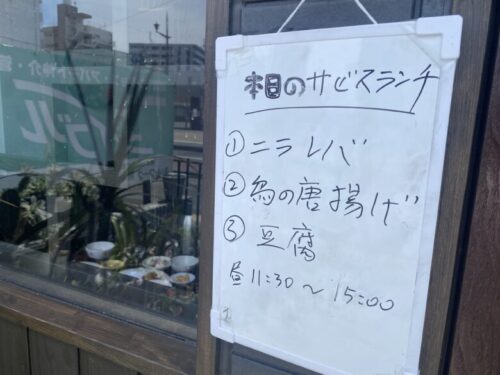 本日のサビスランチ
①ニラレバ
②鳥の唐揚げ
③豆腐
昼11:30～15:00
イブル